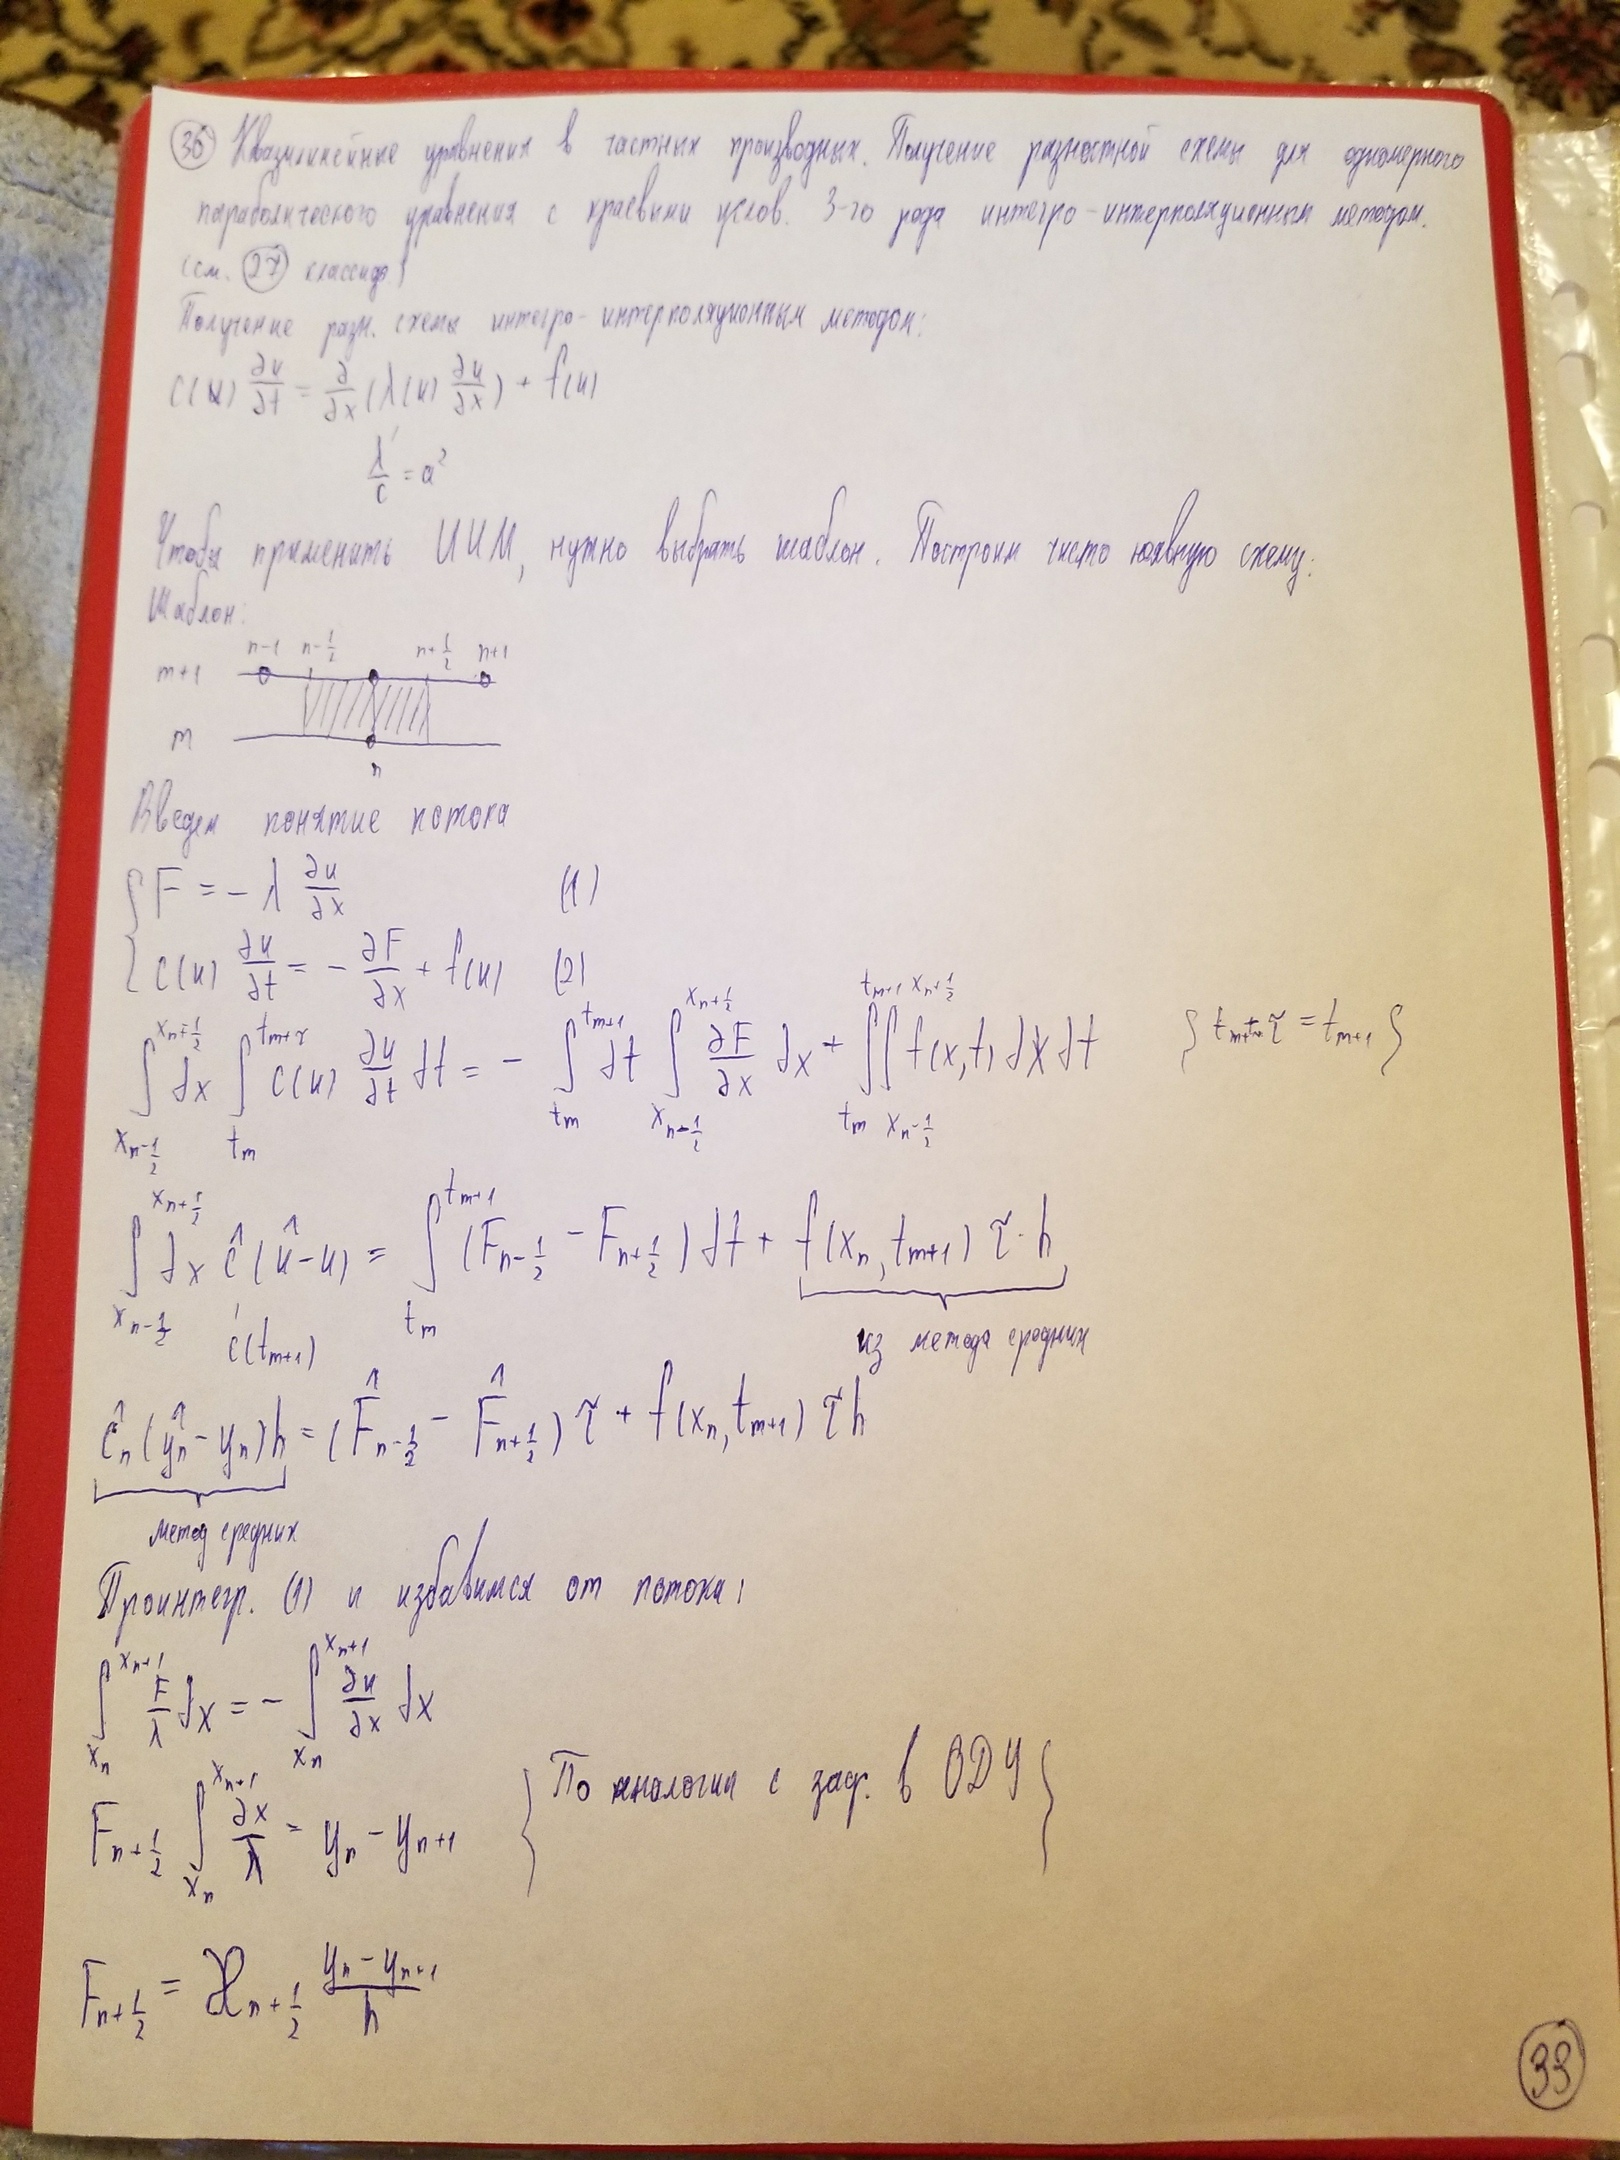 36 Квазилинейные уравнения в частных производных. Получение разностной схемы для одномерного
параболического уравнения с краевыми услов. 3-го рода интегро-интерполяционным методом.
(см. 27 классиф)
Получение разн. схемы интегро-интерполяционным методом:
c(u) ∂u/∂t = ∂/∂x (λ(u) ∂u/∂x) + f(u)
λ/c = a²
Чтобы применить ИИМ, нужно выбрать шаблон. Построим чисто неявную схему:
Шаблон:
n-1 n-1/2 n+1/2 n+1
m+1
m
n
Введем понятие потока
{ F = -λ ∂u/∂x (1)
{ c(u) ∂u/∂t = -∂F/∂x + f(u) (2)
∫_{x_{n-1/2}}^{x_{n+1/2}} dx ∫_{t_m}^{t_{m+τ}} c(u) ∂u/∂t dt = - ∫_{t_m}^{t_{m+1}} dt ∫_{x_{n-1/2}}^{x_{n+1/2}} ∂F/∂x dx + ∫_{t_m}^{t_{m+1}} ∫_{x_{n-1/2}}^{x_{n+1/2}} f(x,t) dx dt { t_m+τ = t_{m+1} }
∫_{x_{n-1/2}}^{x_{n+1/2}} dx ĉ(û-u) = ∫_{t_m}^{t_{m+1}} (F_{n-1/2} - F_{n+1/2}) dt + f(x_n, t_{m+1}) τ·h
c(t_{m+1}) из метода средних
ĉ_n(ŷ_n - y_n)h = (F̂_{n-1/2} - F̂_{n+1/2}) τ + f(x_n, t_{m+1}) τh
метод средних
Проинтегр. (1) и избавимся от потока:
∫_{x_n}^{x_{n+1}} F/λ dx = - ∫_{x_n}^{x_{n+1}} ∂u/∂x dx
F_{n+1/2} ∫_{x_n}^{x_{n+1}} ∂x/λ = y_n - y_{n+1} { По аналогии с зад. в ОДУ }
F_{n+1/2} = ℋ_{n+1/2} (y_n - y_{n+1})/h
33